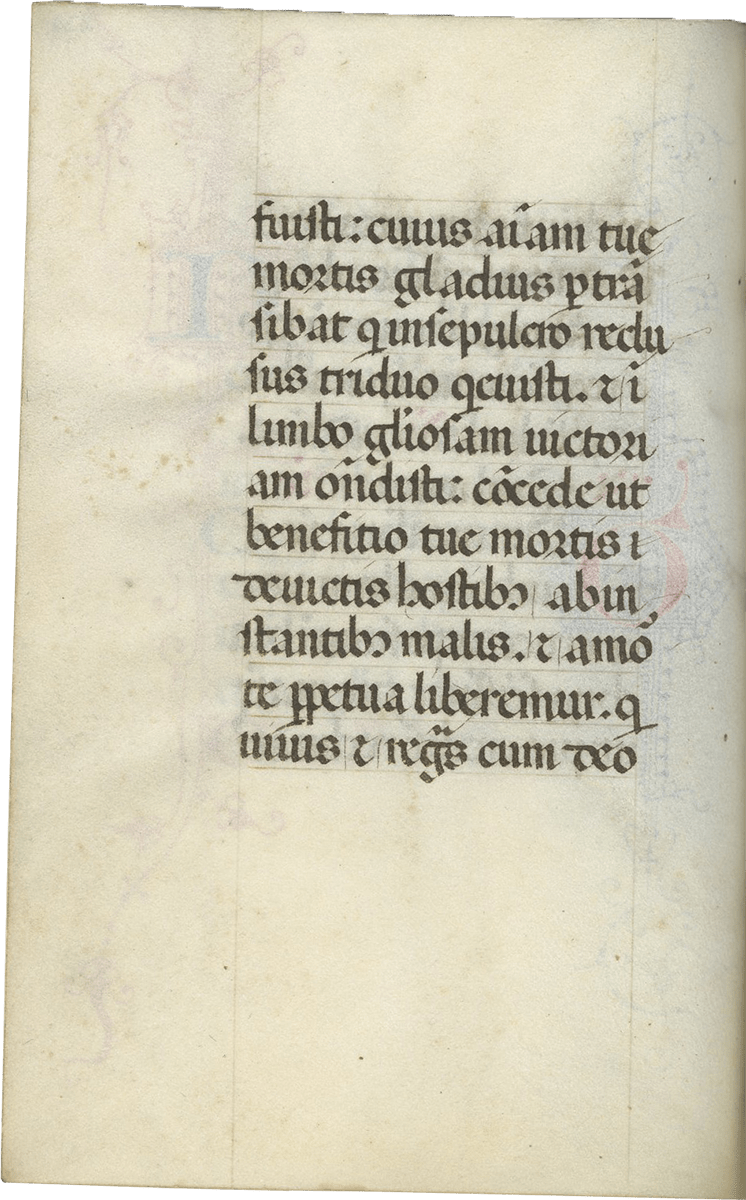 fuisti: cuius aīam tue
mortis gladius ꝑtrā
sibat q in sepulcro reclu
sus triduo qeuisti. ⁊ ī
limbo gliosam uictori
am oñdisti: cōcede ut
benefitio tue mortis i
deuictis hostibꝫ ab in
stantibꝫ malis. ⁊ a mō
te ꝑpetua liberemur. q
uiuis ⁊ regͣs cum deo